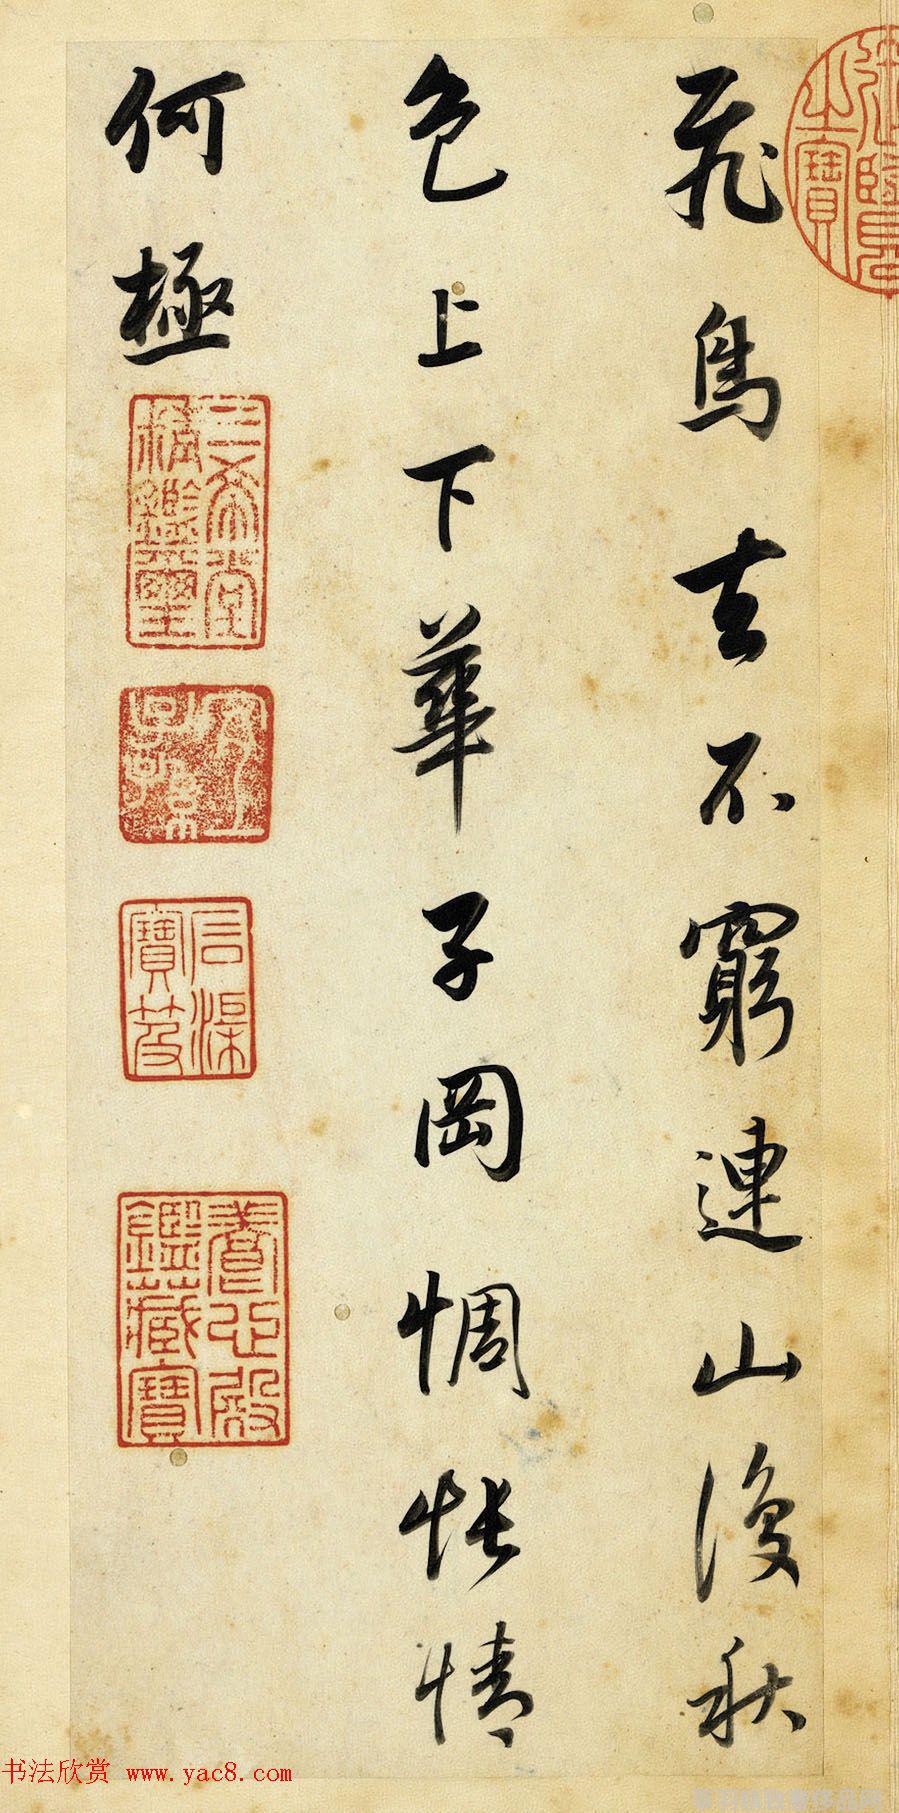 飛鳥去不窮連山復秋
色上下華子岡惆悵情
何極
三希堂精鑑璽
石渠寶笈
養心殿鑑藏寶
書法欣赏 www.yac8.com